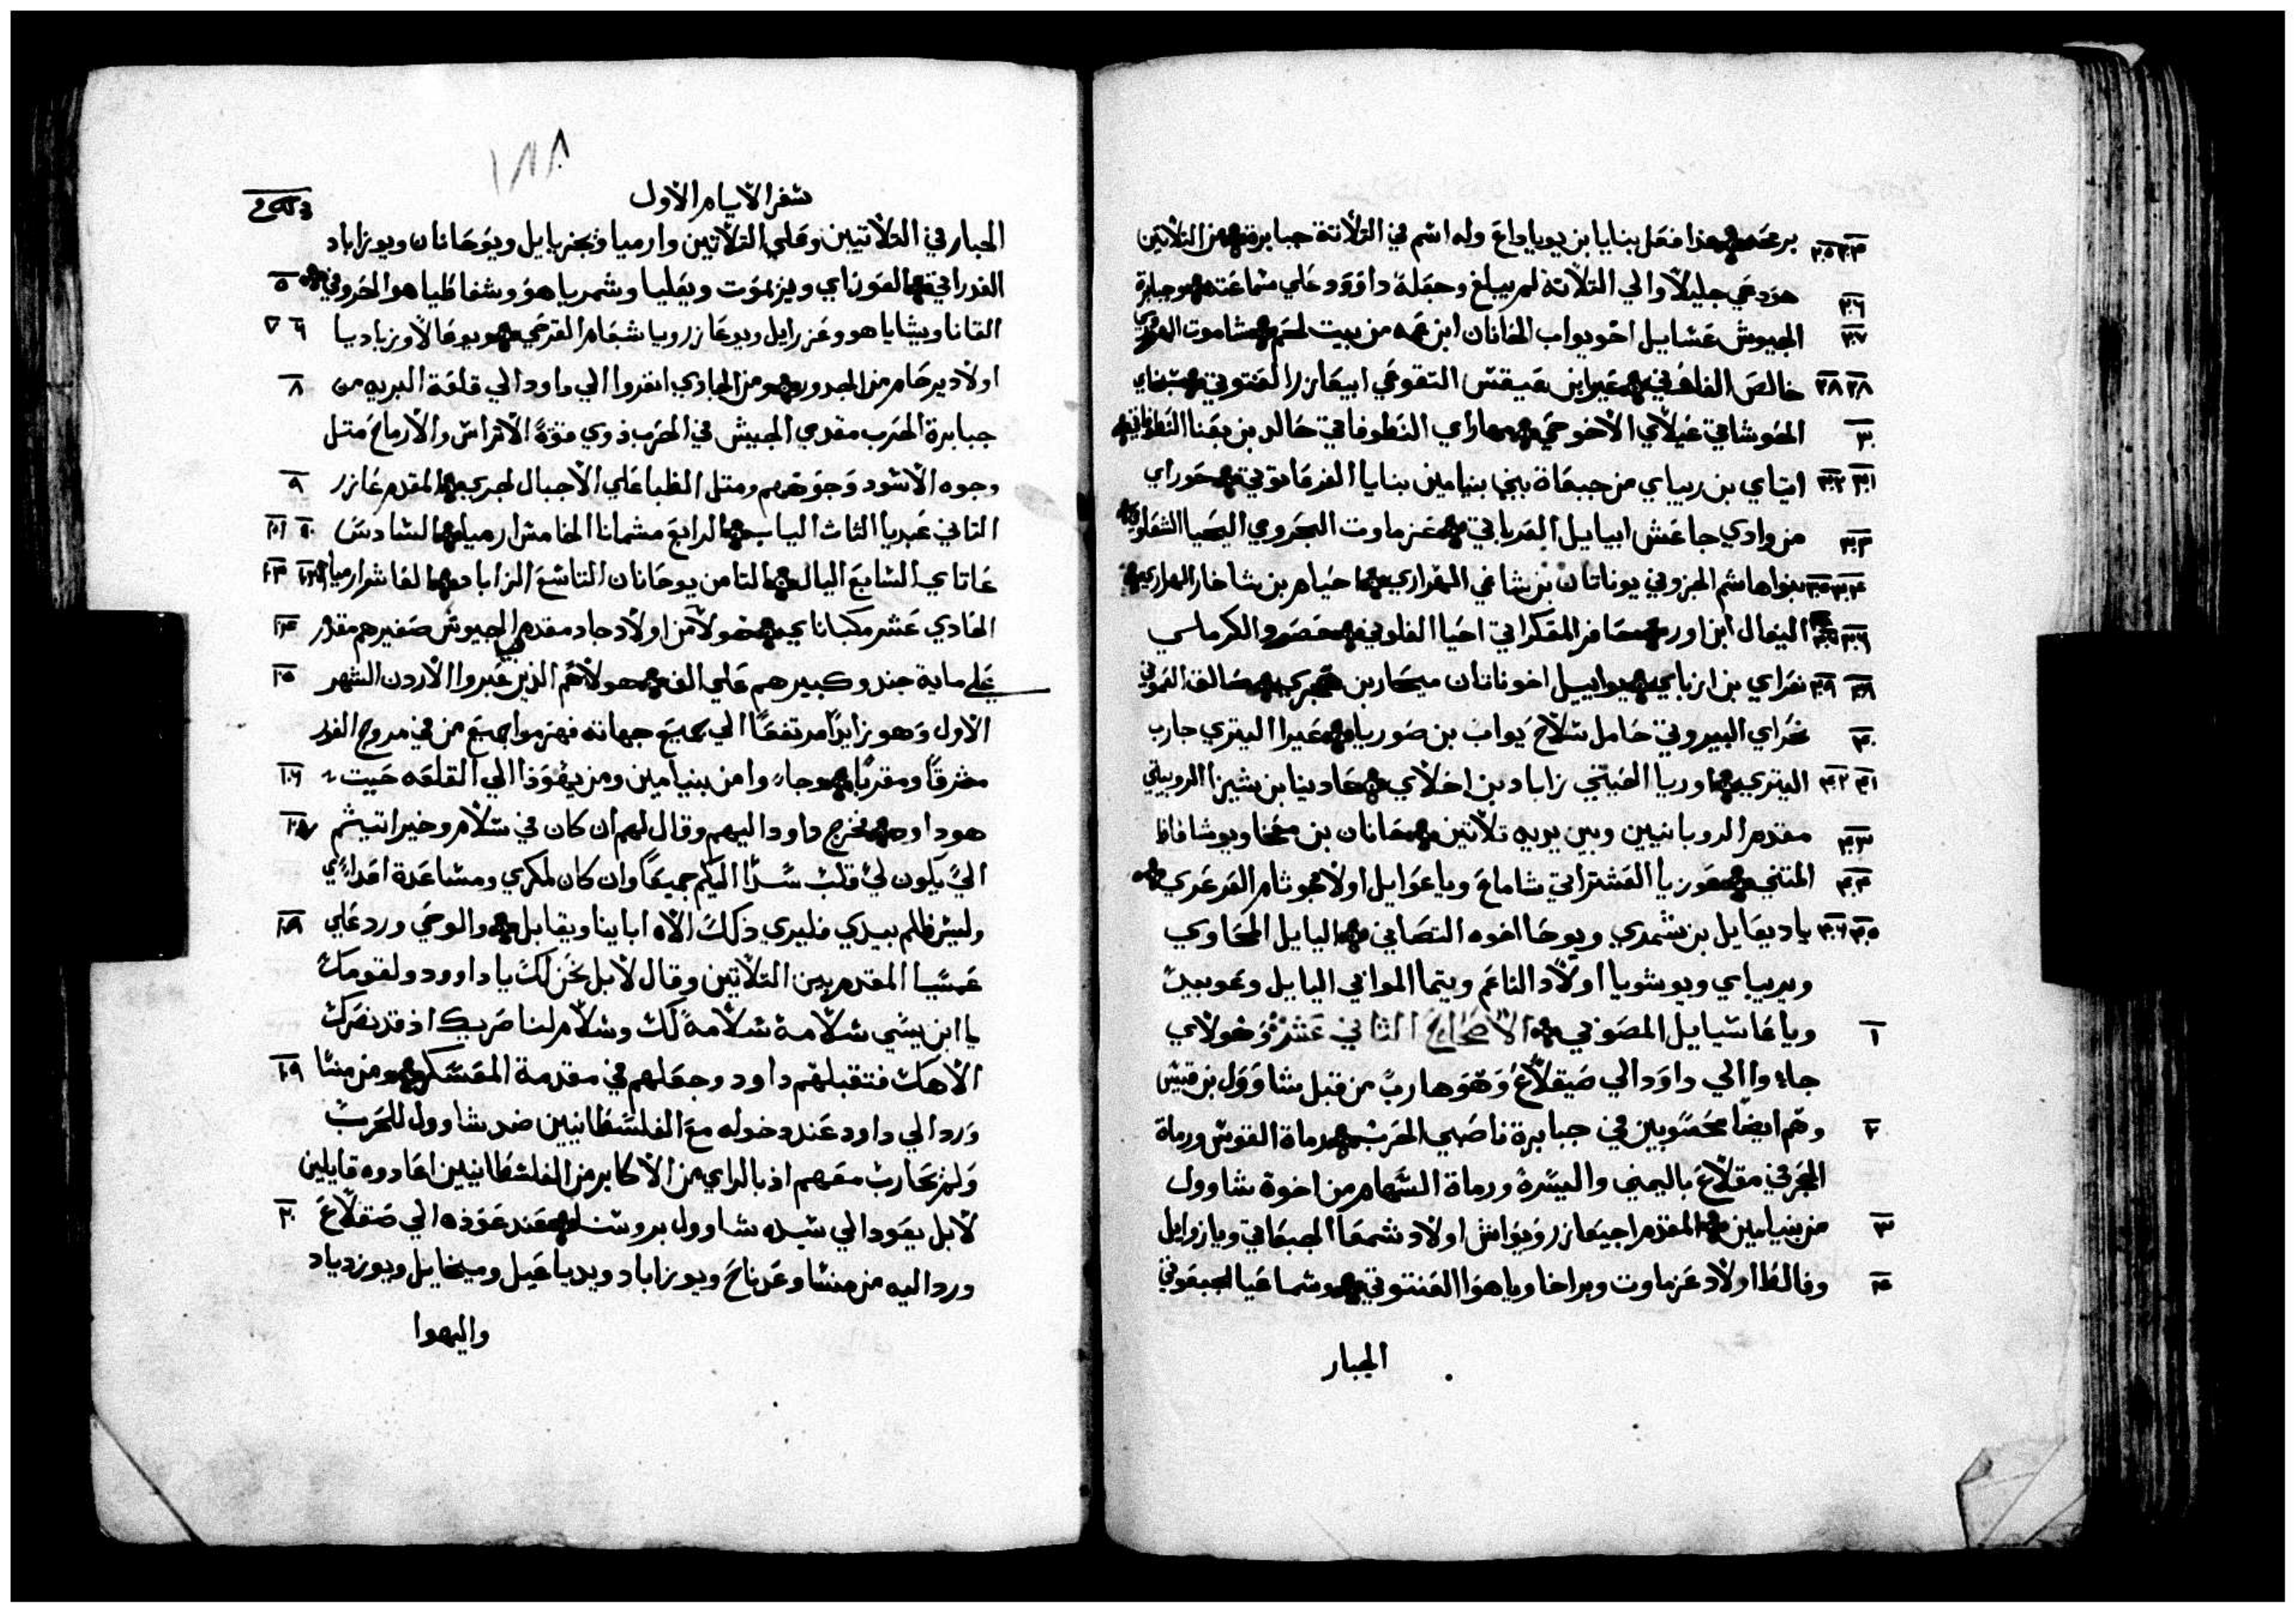 برمحه هذا فعل بنايا بن يوياداع وله اسم في الثلاثة جبابرة من الثلاثين
هو دعي جليلاً والي الثلاثة لم يبلغ وجعله داوود علي سماعته وجبابرة
الجيوش عسايل اخو يواب الحانان ابن عمه من بيت لحم شاموت
خالص الفلفوني عيرا بن عيقش التقوعي ابيعازر العنتوتي
الحوشاتي عيلاي الاخوحي مهاراي النطوفاتي خالد بن بعنا النطوفاتي
ايتاي بن ريباي من جبعاة بني بنيامين بنايا الفرعاتوني حوراي
من وادي جاعش ابيايل العرباتي عزماوت البحرومي اليحبا الشعلبوني
بنوا هاشم الجزوني يوناتان بن شاغي الهراري احيام بن شاخار الهراري
اليفال ابن اور حافر المكراتي احيا الفلوني حصرو الكرملي
نعراي بن ازباي يواييل اخو ناتان مبحار بن هجري صالق العموني
نحراي البيروتي حامل سلاح يواب بن صوريا عيرا اليتري جارب
اليتري اوريا الحيتي زاباد بن احلاي عادينا بن شيزا الروبيلي
مقدم الروبانيين وبين يديه ثلاثين حانان بن معخا ويوشافاط
المتني عوزيا العشتراتي شاماع وياعوايل اولاد حوثام العرعري
ياديعايل بن شمري ويوحا اخوه التصاتي اليايل المحاوي
ويريباي ويوشويا اولاد الناعم ويتما الموابي اليايل وعوبيد
وياعاسيايل المصوني الاصحاح الثاني عشر وهولاي
جاءوا الي داود الي صيقلاغ وهو هارب من قبل شاوول بن قيس
وهم ايضاً محسوبين في جبابرة ناصبي الحرب رماة القوس ورماة
الحجر في مقلاع باليمني واليسرة ورماة السهام من اخوة شاوول
من بنيامين المقدم احيعازر ويواش اولاد شمعا الجبعاتي ويازوايل
وفالط اولاد عزماوت وبراخا وياهو العنتوتي وشماعيا الجبعوني
الجبار
١٨٨
سفر الايام الاول
الجبار في الثلاثيين وعلي الثلاثين وارميا ويحزيايل ويوحانان ويوزاباد
الغدراتي العوزاي ويزيموت وبعليا وشمرياهو وشفاطيا هو الحروفي
القانا ويشاياهو وعزرايل ويوعازر ويا شبعام القرحي ويوعالا وزباديا
اولاد يرحام من الجدور ومن الجادي انفردوا الي داود الي قلعة البريه من
جبابرة الحرب مقدمي الجيش في الحرب ذوي قوة الاتراس والارماح مثل
وجوه الاسود وجوههم ومثل الظبا علي الاجبال لجري المقدم عازر
الثاني عبديا الثالث الياب الرابع مشمانا الخامس ارميا السادس
عاتاي السابع اليال الثامن يوحانان التاسع الزاباد العاشر ارميا
الحادي عشر مكباناي هولاء من اولاد جاد مقدمي الجيوش صغيرهم مقدر
علي ماية جند وكبيرهم علي الف هولاء هم الذين عبروا الاردن الشهر
الاول وهو زايداً مرتفعاً الي جميع جهاته فهزموا جميع من في مروج الغور
مشرقاً ومغرباً وجاءوا من بنيامين ومن يهوذا الي القلعه حيث
هو داود فخرج داود اليهم وقال لهم ان كان في سلام وخير اتيتم
الي يكون لي قلب سراً اليكم جميعاً وان كان لمكري ومساعدة اعداءي
وليس ظلم بيدي فليري ذلك الاه ابائنا ويقابل والوحي ورد علي
عمسيا المقدم بين الثلاثين وقال لابل نحن لك يا داوود ولقومك
يا ابن يشي سلامة سلامة لك وسلام لناصريك اذ قد نصرك
الاهك فتقبلهم داود وجعلهم في مقدمة العسكر ومن منسا
ورد الي داود عند دخوله مع الفلسطانيين ضد شاوول للحرب
ولم يحارب معهم اذ بالراي من الاكابر من الفلسطانيين اعادوه قايلين
لابل يعود الي سيده شاوول بروسنا عند عوده الي صقلاغ
ورد اليه من منسا وعدناح ويوزاباد ويدياعيل وميخايل ويوزدباد
واليهوا